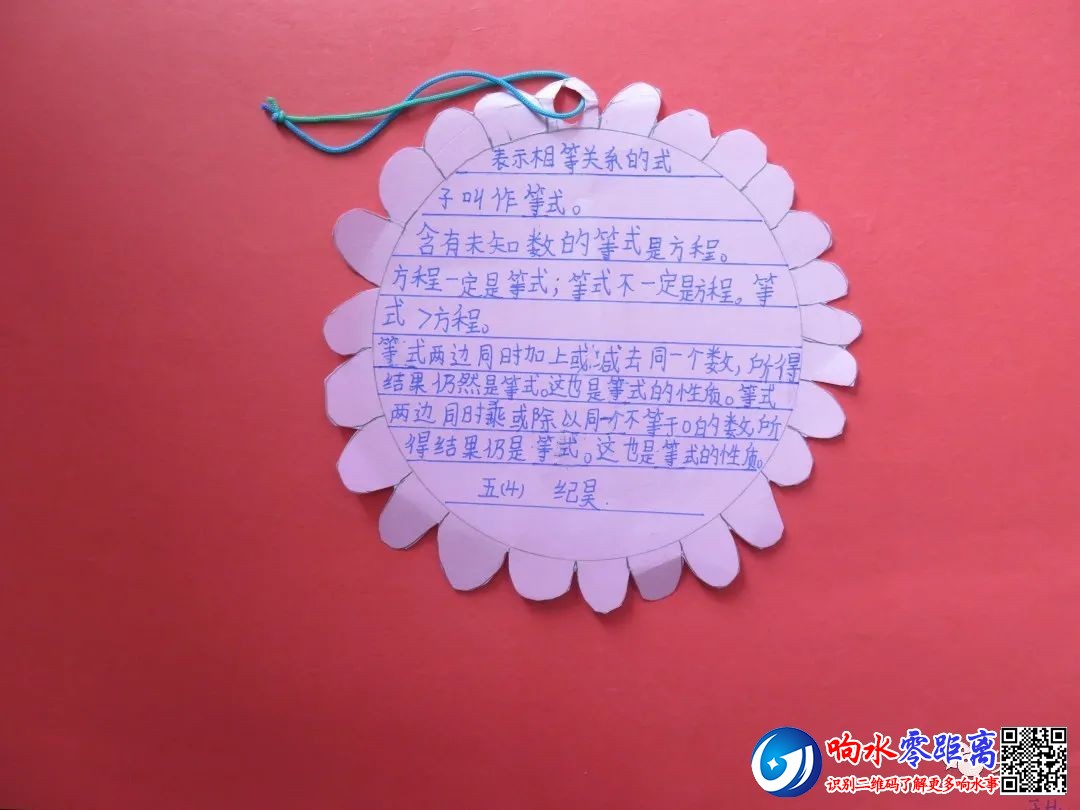 表示相等关系的式
子叫作等式。
含有未知数的等式是方程。
方程一定是等式；等式不一定是方程。等
式>方程。
等式两边同时加上或减去同一个数，所得
结果仍然是等式。这也是等式的性质。等式
两边同时乘或除以同一个不等于0的数，所
得结果仍是等式。这也是等式的性质。
五(4) 纪昊.
响水零距离
识别二维码了解更多响水事